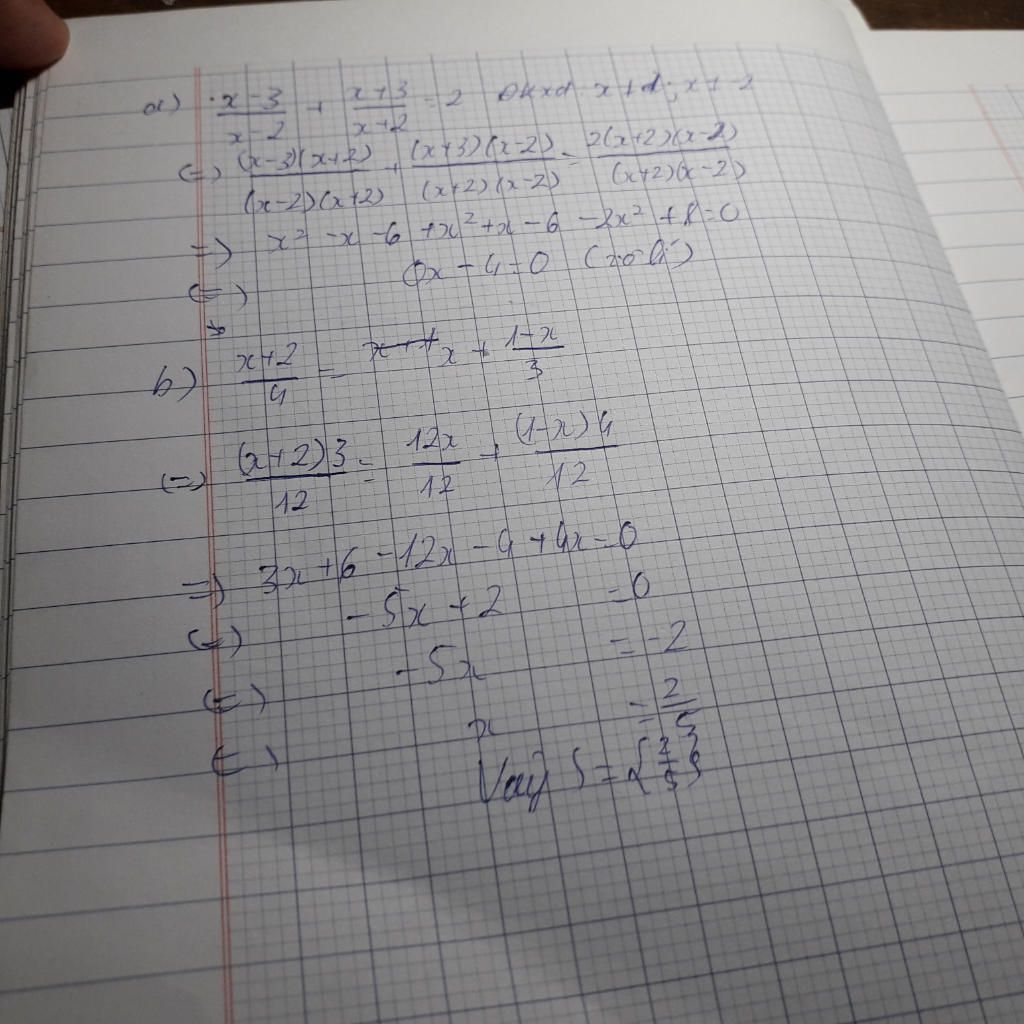 a) x-3/x-2 + x+3/x+2 = 2 ĐKXĐ x≠2; x≠-2
(=) (x-3)(x+2)/(x-2)(x+2) + (x+3)(x-2)/(x+2)(x-2) = 2(x+2)(x-2)/(x+2)(x-2)
=) x² -x -6 +x² +x -6 -2x² +8 = 0
(=) 0x - 4 = 0 (vô lí)
b) x+2/4 = x + 1-x/3
(=) (x+2)3/12 = 12x/12 + (1-x)4/12
=) 3x+6 -12x -4 +4x = 0
(=) -5x + 2 = 0
(=) -5x = -2
(=) x = 2/5
Vậy S = {2/5}